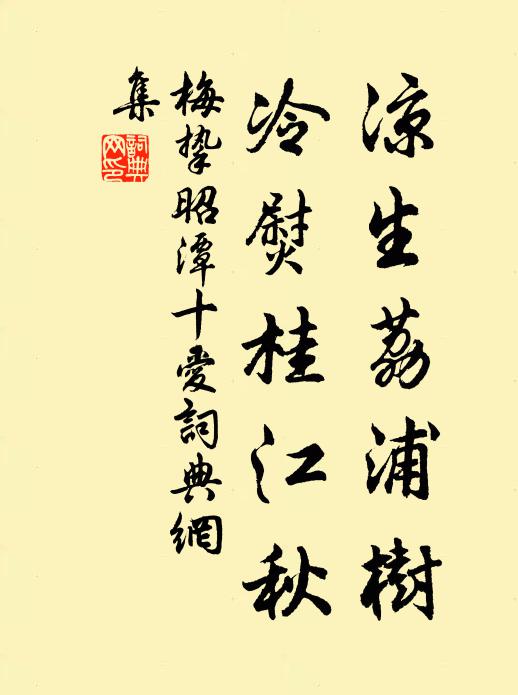 凉生荔浦樹
冷熨桂江秋
梅挚昭潭十愛詞典網
集
詞典網印